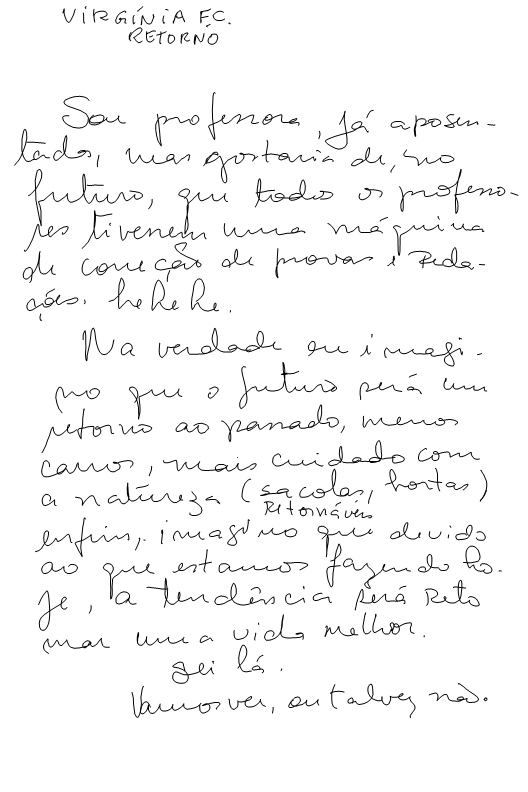 VIRGÍNIA FC.
RETORNO
Sou professora, já aposen-
tada, mas gostaria de, no
futuro, que todo os professo-
res tivessem uma máquina
de correção de provas e Reda-
ções. he he he.
Na verdade eu imagi-
no que o futuro será um
retorno ao passado, menos
carros, mais cuidado com
a natureza (sacolas, hortas)
Retornáveis
enfim, imagino que devido
ao que estamos fazendo ho-
je, a tendência será reto
mar uma vida melhor.
Sei lá.
Vamos ver, ou talvez não.